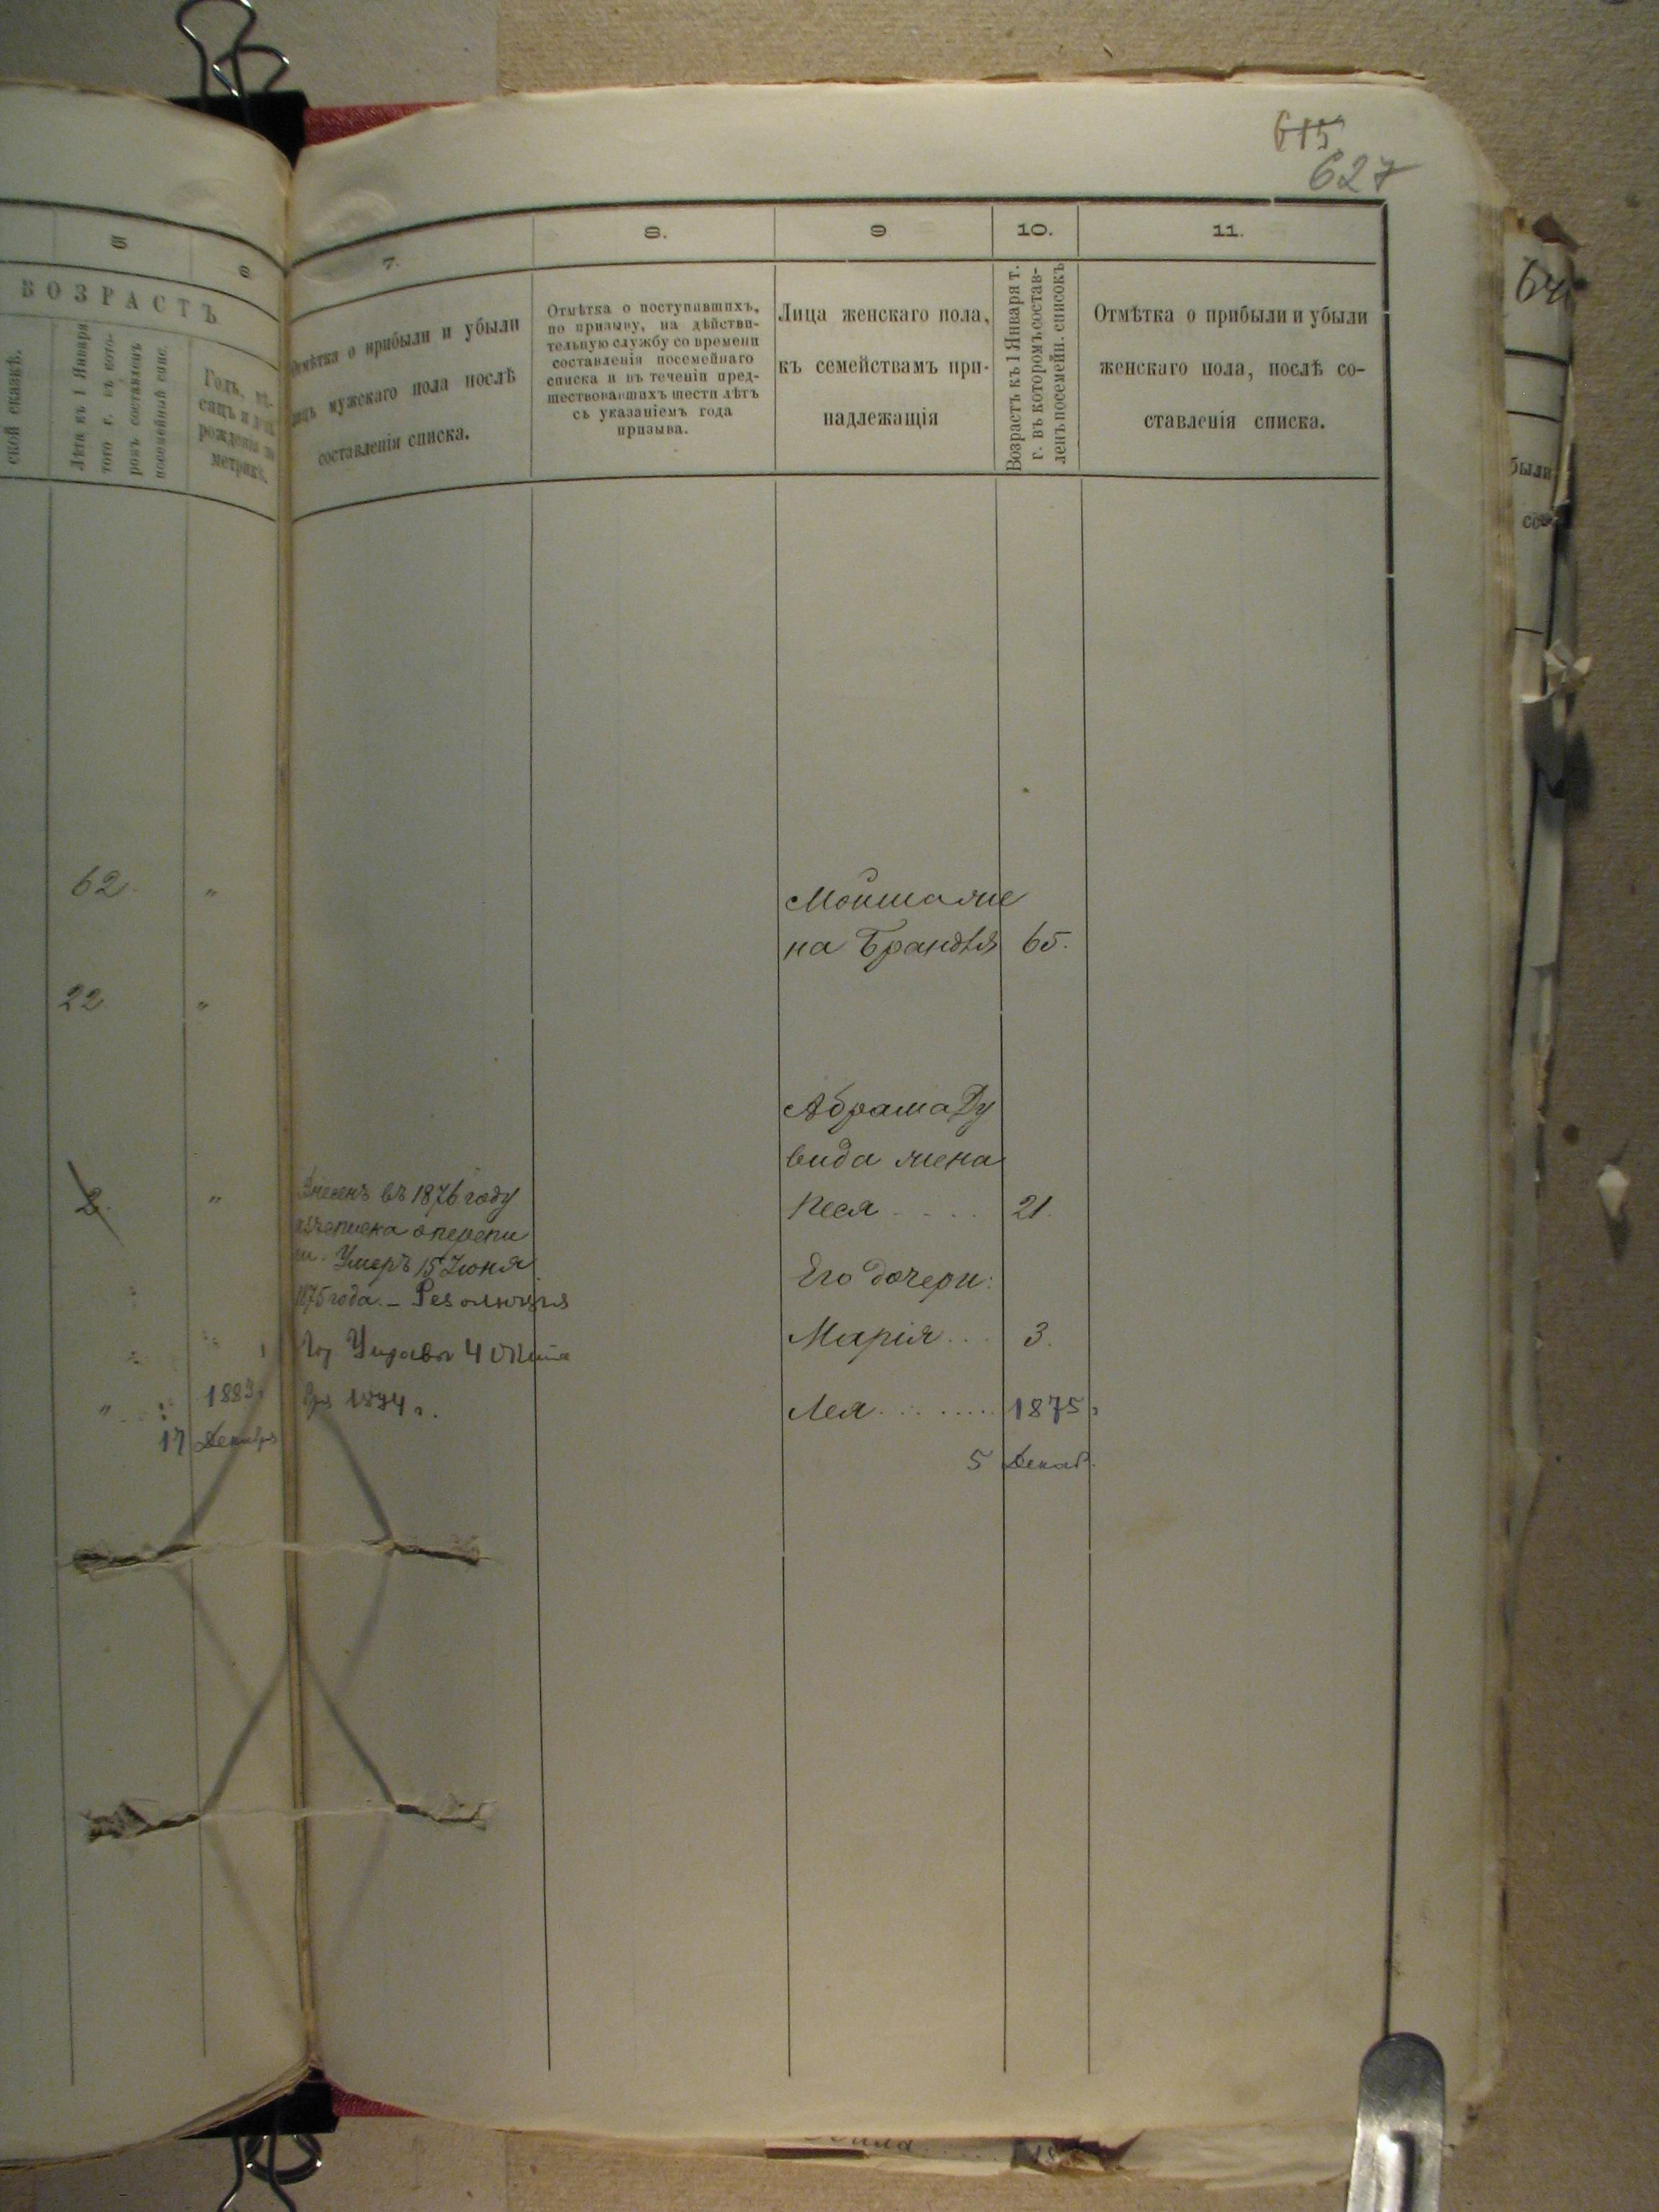 615
627
5
6
7.
8.
9
10.
11.
ВОЗРАСТЪ
ской сказкѣ.
Лѣта къ 1 Января
того г. въ кото-
ромъ составленъ
посемейный спис.
Годъ, мѣ-
сяцъ и день
рожденія по
метрикѣ.
Отмѣтка о прибыли и убыли
лицъ мужскаго пола послѣ
составленія списка.
Отмѣтка о поступившихъ,
по призыву, на дѣйстви-
тельную службу со времени
составленія посемейнаго
списка и въ теченіи пред-
шествовавшихъ шести лѣтъ
съ указаніемъ года
призыва.
Лица женскаго пола,
къ семействамъ при-
надлежащія
Возрастъ къ 1 Января т.
г. въ которомъ состав-
ленъ посемейн. списокъ
Отмѣтка о прибыли и убыли
женскаго пола, послѣ со-
ставленія списка.
были
62. "
22. "
2. "
1883
17 Декабря
Внесенъ въ 1876 году
изъ списка о перепи
си. Умеръ 15 Іюня
1875 года. – Резолюція
Гор. Управы 4
1894 г.
Мойши же
на Брандля 65.
Абрама Ду
вида жена
Песя 21.
Его дочери:
Марія 3.
Лея 1875
5 Декаб.